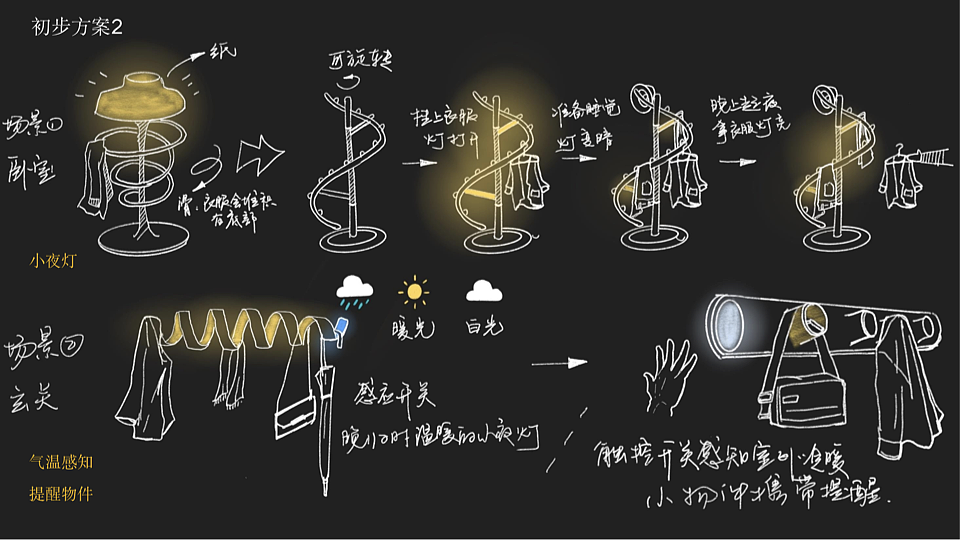 初步方案2
纸
场景①
卧室
滑，衣服会堆积
在底部
小夜灯
可旋转
挂上衣服
灯打开
准备睡觉
灯变暗
晚上起夜
拿衣服灯亮
场景②
玄关
气温感知
提醒物件
暖光
白光
感应开关
晚归时温暖的小夜灯
触控开关感知室外冷暖
小物件携带提醒.